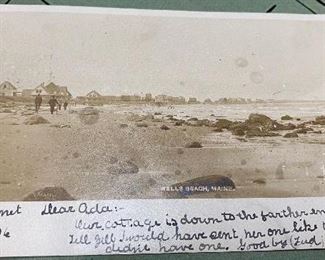 WELLS BEACH, MAINE.
Dear Ada:-
Our cottage is down to the farther en
Tell Jill I would have sent her one like t
didn't have one. Good by (Fud)